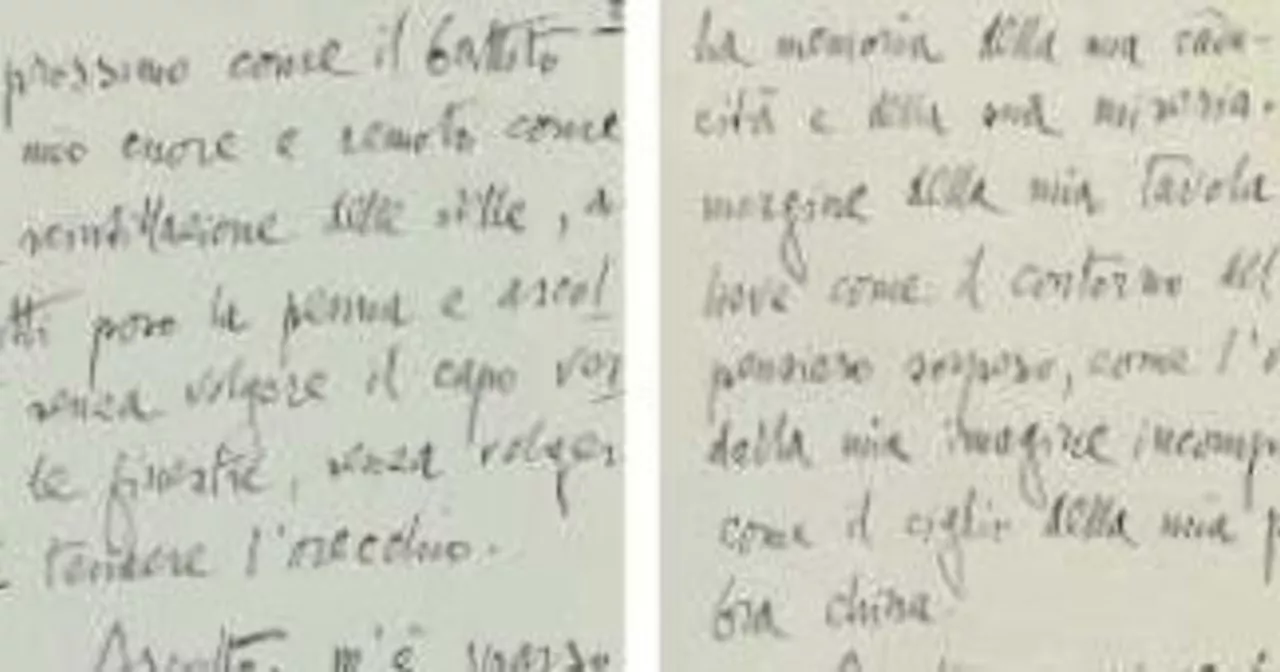 prossimo come il battito
mio cuore e remoto come
scintillazione delle stelle, a
tti poso la penna e ascol
senza volgere il capo ver
le finestre, senza volger
tendere l'orecchio.
Ascolto. m'è
la memoria della sua cadu-
cità e della sua miseria.
margine della mia tavola
breve come il contorno del
pensiero sospeso, come l'o
della mia imagine incomp
come il ciglio della mia p
bra china.